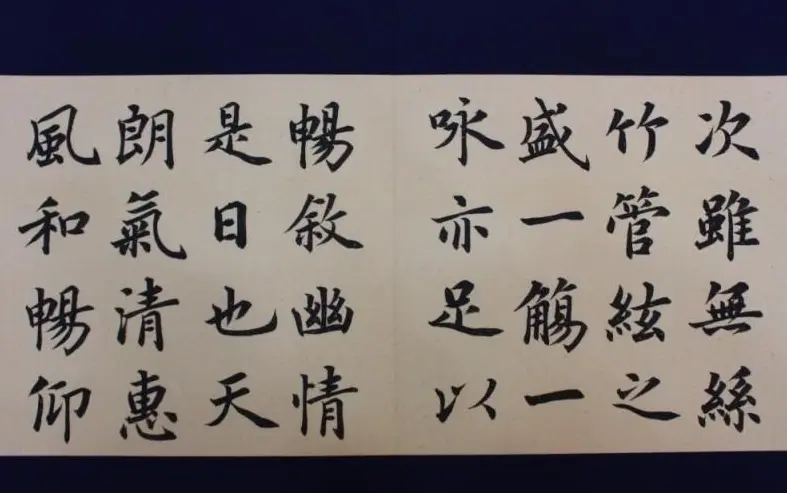 次雖無絲
竹管絃之
盛一觴一
咏亦足以
暢敘幽情
是日也天
朗氣清惠
風和暢仰